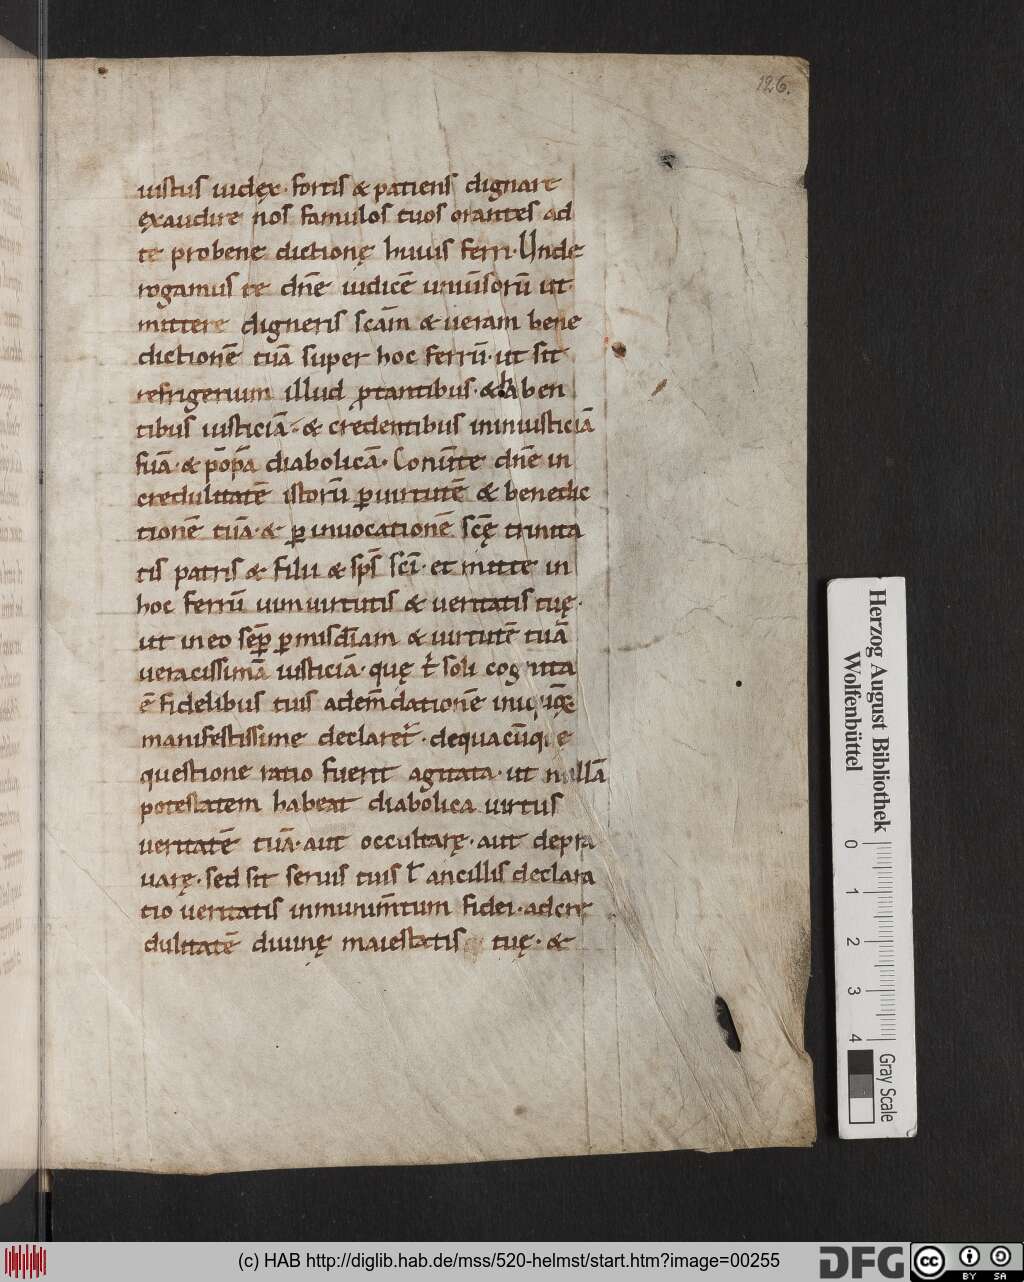 126.
iustus iudęx · fortis & patiens dignare
ęxaudire nos famulos tuos orantes ad
te probene dictionę huius ferri · Unde
rogamus te dn̄e iudicē uniūsorū ut
mittere digneris scām & ueram bene
dictionē tuā super hoc ferrū · ut sit
refrigerium illud portantibus · & haben
tibus iusticiā · & credentibus in iniusticiā
suā · & pōpā diabolicā · Conūte dn̄e in
credulitatē istorū ꝑ uirtutē & benedic
tionē tuā · & ꝑ inuocationē scę̄ trinita
tis patris & filii & sps̄ scī · et mitte in
hoc ferrū uim uirtutis & ueritatis tuę ·
ut in eo sep̄ ꝑ misd̄iam & uirtutē tuā
ueracissimā iusticiā · quę t̄ soli cognita
ē fidelibus tuis ad em̄dationē
manifestissime declaret̄ · de quacūque
questione ratio fuerit agitata · ut nullā
potestatem habeat diabolica uirtus
ueritatē tuā · aut occultarę · aut depra
uarę · sed sit seruis tuis ł ancillis declara
tio ueritatis in munim̄tum fidei · ad cre
dulitatē diuinę maiestatis tuę · &
Herzog August Bibliothek
Wolfenbüttel
0 1 2 3 4
Gray Scale
(c) HAB http://diglib.hab.de/mss/520-helmst/start.htm?image=00255
DFG
cc BY SA